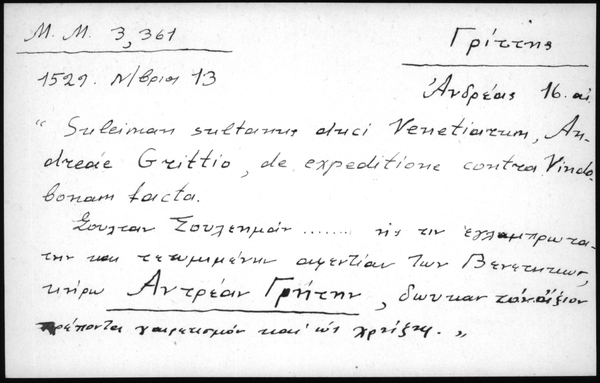 Μ. Μ. 3, 361
Γρίττης
1529. Ν/βριου 13
Ἀνδρέας 16. αἰ
" Suleiman sultanus duci Venetiarum, An-
dreae Grittio, de expeditione contra Vindo
bonam facta.
Σουλταν Σουλεημάν ........ ης τιν εγλαμπρωτα-
την και τετιμιμένην αφεντίαν των Βενετικων,
κηρω Αντρέαν Γρήτην, δωυκαν τον ἄξιον
πρέποντα χαιρετισμόν και ὡς χρήζη. „